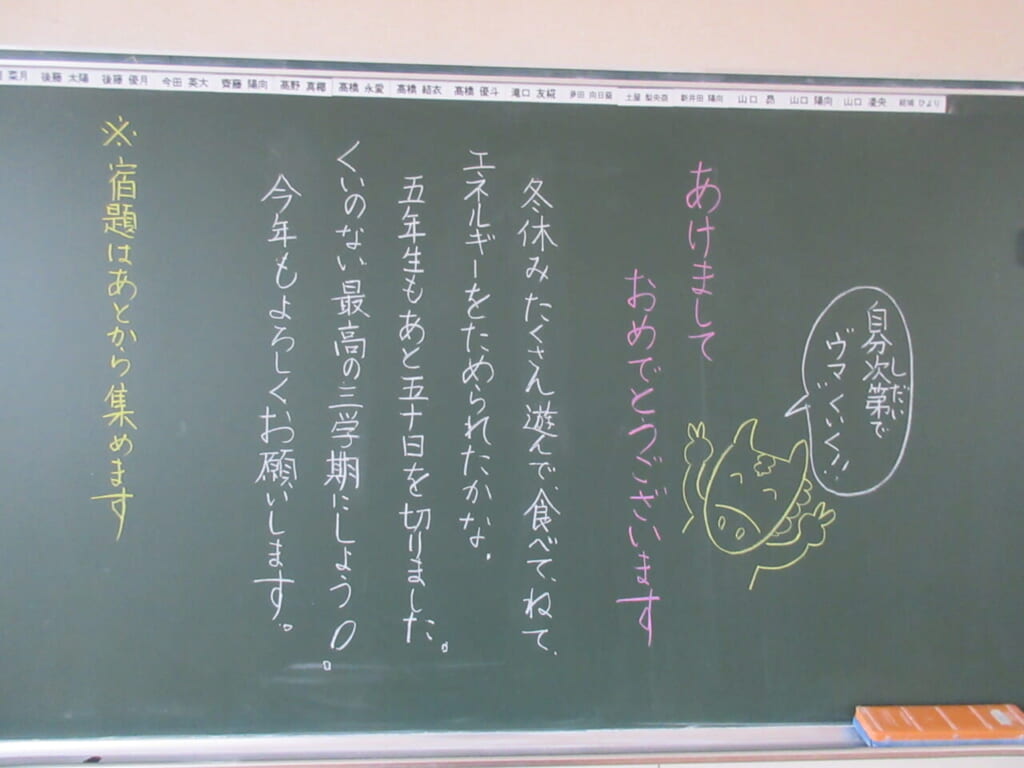 菜月 後藤 太陽 後藤 優月 今田 英大 齊藤 陽向 髙野 真椰 髙橋 永愛 髙橋 結衣 髙橋 優斗 滝口 友椛 多田 向日葵 土屋 梨央奈 新井田 陽向 山口 昴 山口 陽向 山口 凌央 結城 ひより
自分次第で
しだい
ヴマ〝くいく!!
あけまして
おめでとうございます
冬休みたくさん遊んで、食べて、ねて、
エネルギーをためられたかな。
五年生もあと五十日を切りました。
くいのない最高の三学期にしよう。
今年もよろしくお願いします。
※宿題はあとから集めます